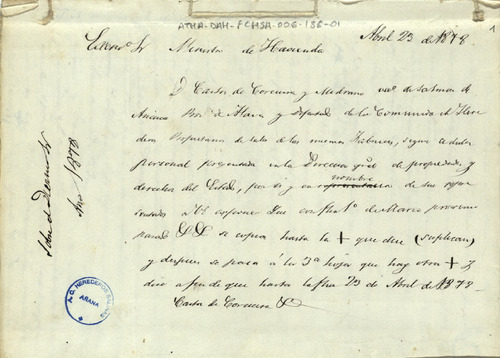 ATHA-DAH-FCHSA-006-186-01
1
Abril 23 de 1878
Excmo Sr Ministro de Hacienda
D Carlos de Corcuera y Medrano de Salinas de
Añana Prov de Alava y Diputado de la Comunidad de Here
dera Propietaria de las mismas segun
personal en la Direccion gral de propiedades y
derechos del Estado, por si y en nombre de sus repre
sentados a VE expone Que con fha 1º de Marzo
pasado se copia hasta la + que dice (suplican)
y despues se pasa á la 3ª hoja que hay otra + y
dice a fin de que hasta la fha 23 de Abril de 1878
Carlos de Corcuera
Año 1878
A.C. HEREDEROS SALINAS
AÑANA